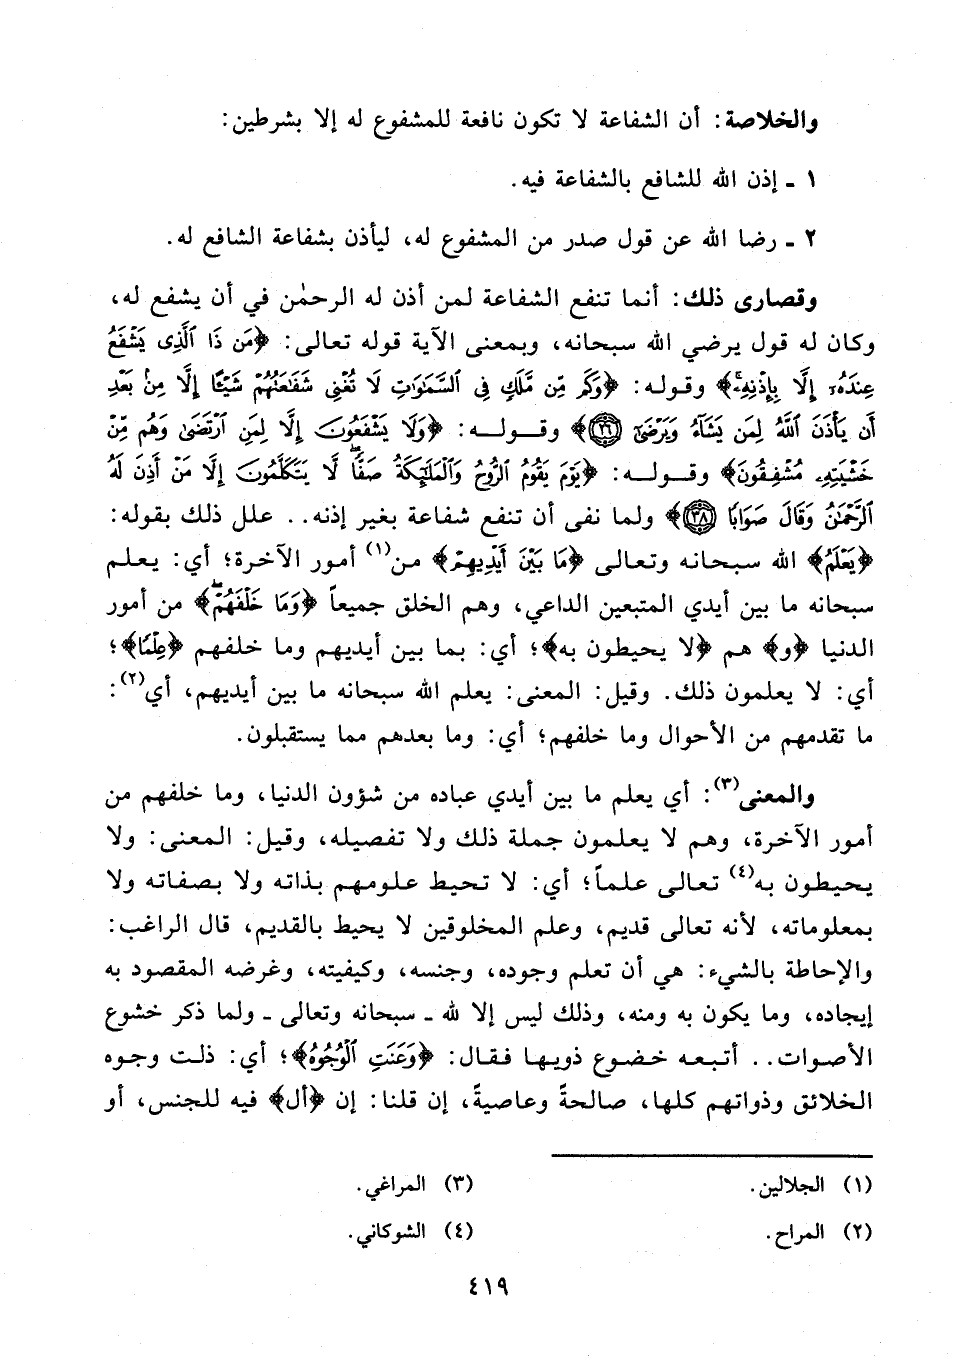 والخلاصة: أن الشفاعة لا تكون نافعة للمشفوع له إلا بشرطين:
١ ـ إذن الله للشافع بالشفاعة فيه.
٢ ـ رضا الله عن قول صدر من المشفوع له، ليأذن بشفاعة الشافع له.
وقصارى ذلك: أنما تنفع الشفاعة لمن أذن له الرحمٰن في أن يشفع له،
وكان له قول يرضي الله سبحانه، وبمعنى الآية قوله تعالى: ﴿مَن ذَا ٱلَّذِى يَشْفَعُ
عِندَهُۥٓ إِلَّا بِإِذْنِهِۦ﴾ وقوله: ﴿وَكَم مِّن مَّلَكٍ فِى ٱلسَّمَٰوَٰتِ لَا تُغْنِى شَفَٰعَتُهُمْ شَيْـًٔا إِلَّا مِنۢ بَعْدِ
أَن يَأْذَنَ ٱللَّهُ لِمَن يَشَآءُ وَيَرْضَىٰٓ ٢٦﴾ وقوله: ﴿وَلَا يَشْفَعُونَ إِلَّا لِمَنِ ٱرْتَضَىٰ وَهُم مِّنْ
خَشْيَتِهِۦ مُشْفِقُونَ﴾ وقوله: ﴿يَوْمَ يَقُومُ ٱلرُّوحُ وَٱلْمَلَٰٓئِكَةُ صَفًّا ۖ لَّا يَتَكَلَّمُونَ إِلَّا مَنْ أَذِنَ لَهُ
ٱلرَّحْمَٰنُ وَقَالَ صَوَابًا ٣٨﴾ ولما نفى أن تنفع شفاعة بغير إذنه.. علل ذلك بقوله:
﴿يَعْلَمُ﴾ الله سبحانه وتعالى ﴿مَا بَيْنَ أَيْدِيهِمْ﴾ من(١) أمور الآخرة؛ أي: يعلم
سبحانه ما بين أيدي المتبعين الداعي، وهم الخلق جميعاً ﴿وَمَا خَلْفَهُمْ ۖ﴾ من أمور
الدنيا ﴿و﴾ هم ﴿لا يحيطون به﴾؛ أي: بما بين أيديهم وما خلفهم ﴿عِلْمًا﴾؛
أي: لا يعلمون ذلك. وقيل: المعنى: يعلم الله سبحانه ما بين أيديهم، أي(٢):
ما تقدمهم من الأحوال وما خلفهم؛ أي: وما بعدهم مما يستقبلون.
والمعنى(٣): أي يعلم ما بين أيدي عباده من شؤون الدنيا، وما خلفهم من
أمور الآخرة، وهم لا يعلمون جملة ذلك ولا تفصيله، وقيل: المعنى: ولا
يحيطون به(٤) تعالى علماً؛ أي: لا تحيط علومهم بذاته ولا بصفاته ولا
بمعلوماته، لأنه تعالى قديم، وعلم المخلوقين لا يحيط بالقديم، قال الراغب:
والإحاطة بالشيء: هي أن تعلم وجوده، وجنسه، وكيفيته، وغرضه المقصود به
إيجاده، وما يكون به ومنه، وذلك ليس إلا لله ـ سبحانه وتعالى ـ ولما ذكر خشوع
الأصوات.. أتبعه خضوع ذويها فقال: ﴿وَعَنَتِ ٱلْوُجُوهُ﴾؛ أي: ذلت وجوه
الخلائق وذواتهم كلها، صالحةً وعاصيةً، إن قلنا: إن ﴿أل﴾ فيه للجنس، أو
(١) الجلالين.
(٢) المراح.
(٣) المراغي.
(٤) الشوكاني.
٤١٩